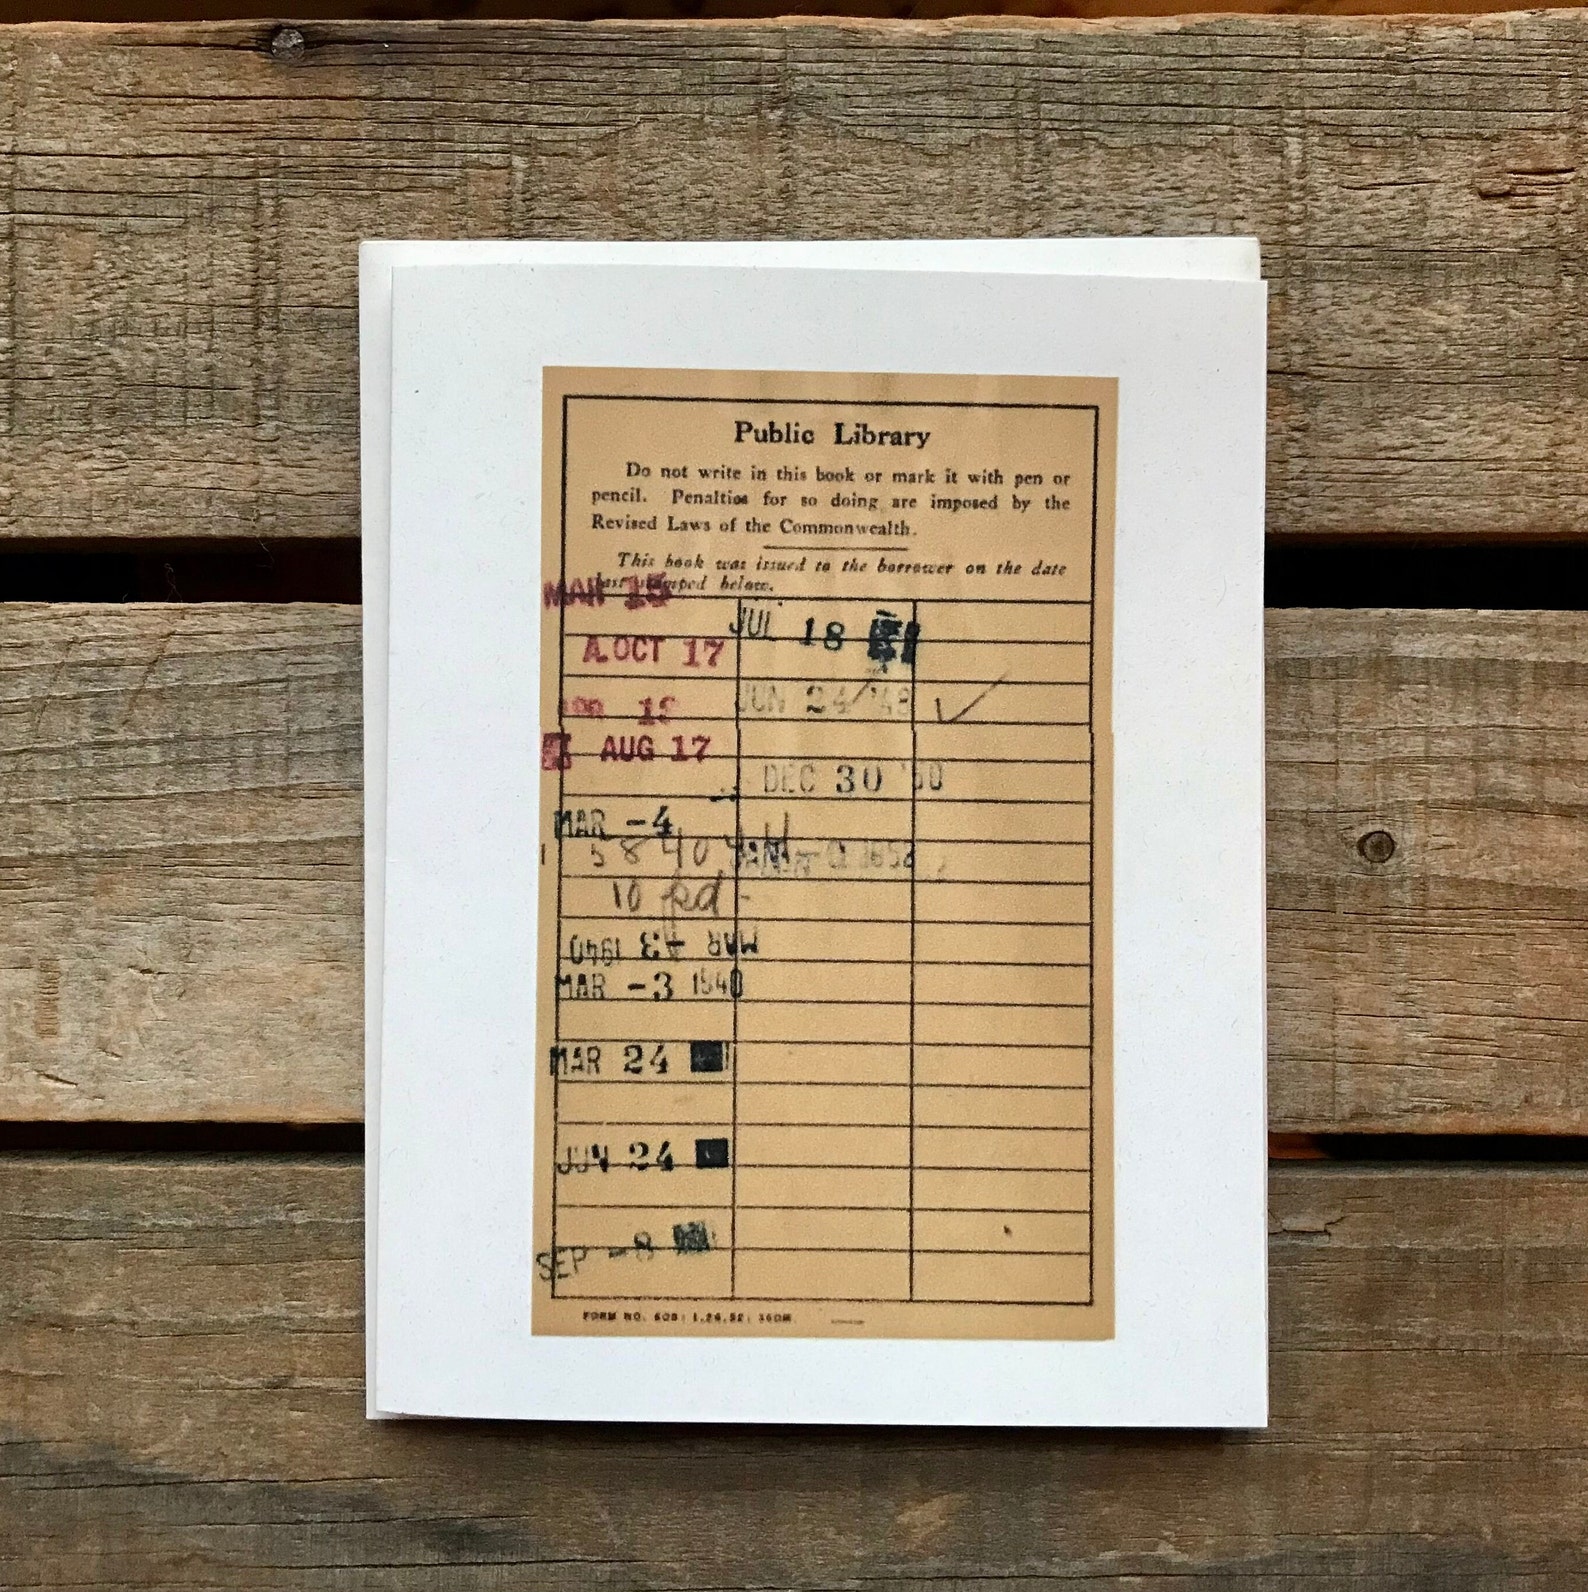 Public Library
Do not write in this book or mark it with pen or
pencil. Penalties for so doing are imposed by the
Revised Laws of the Commonwealth.
This book was issued to the borrower on the date
last stamped below.
MAR 15
A. OCT 17
AUG 17
MAR -4
5 8 40
10
MAR -3 1940
MAR -3 1940
MAR 24
JUN 24
SEP -8
JUL 18
JUN 24 '43
DEC 30 '50
FORM NO. 609: 1.26.32: 360M.